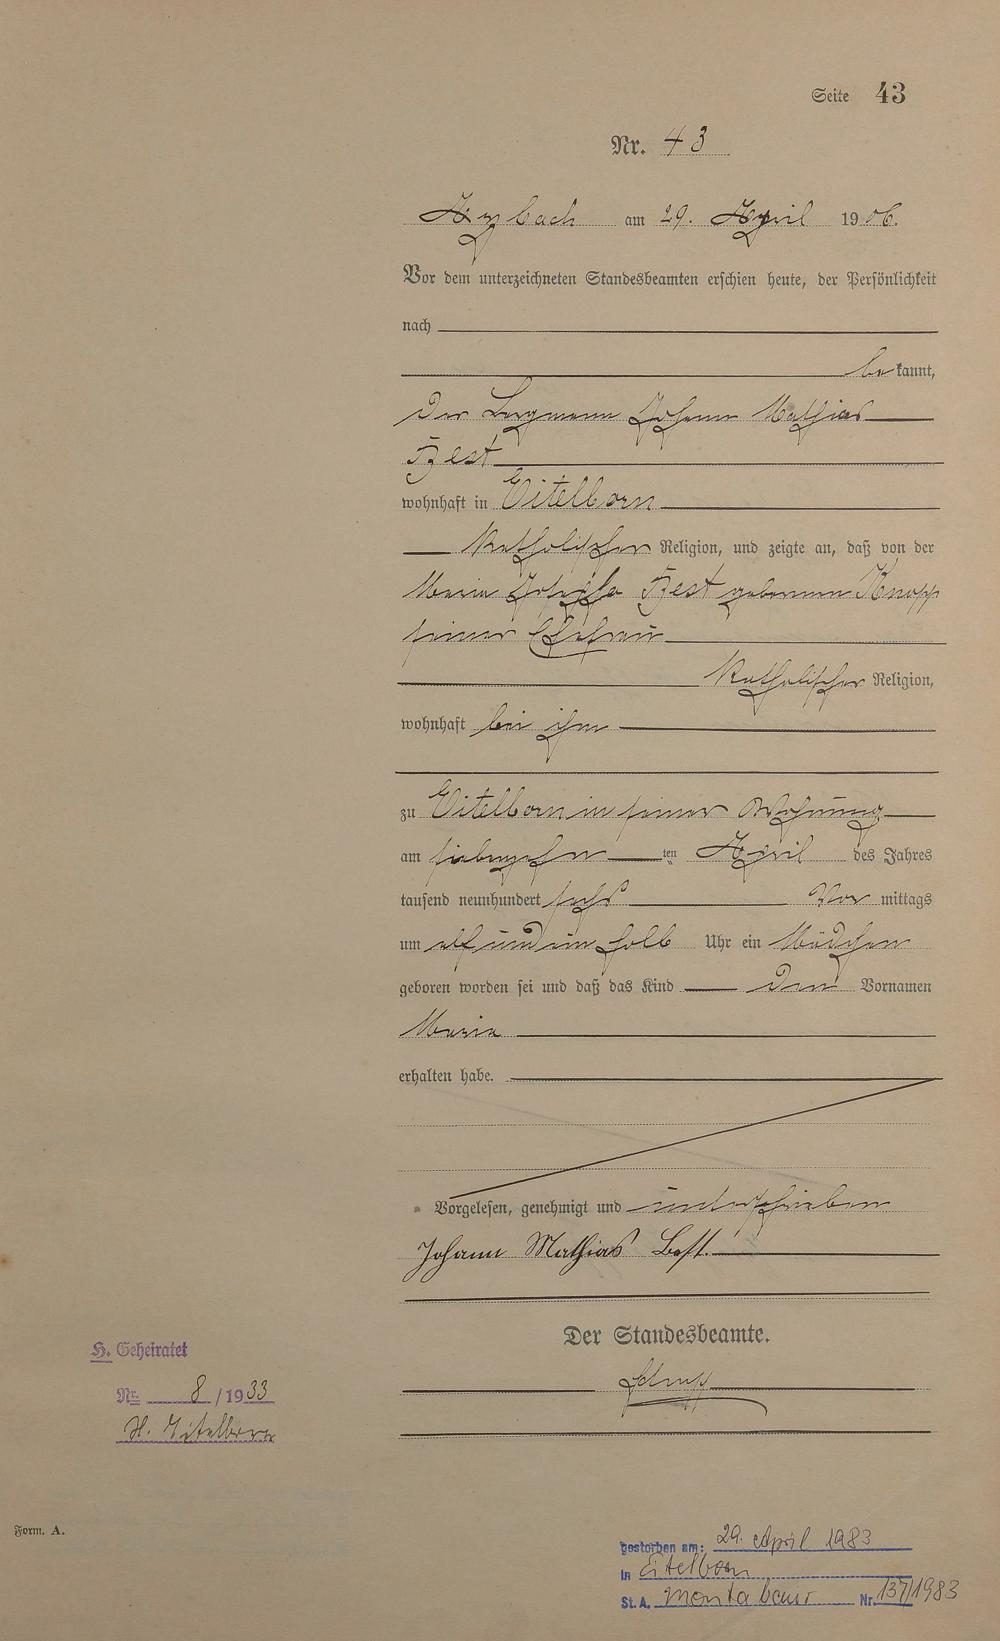 Seite 43
Nr. 43
Arzbach am 29. April 1906.
Vor dem unterzeichneten Standesbeamten erschien heute, der Persönlichkeit
nach
bekannt,
der Bergmann Johann Mathias
Best
wohnhaft in Eitelborn
katholischer Religion, und zeigte an, daß von der
Maria Josepha Best geborenen Knopp
seiner Ehefrau
katholischer Religion,
wohnhaft bei ihm
zu Eitelborn in seiner Wohnung
am siebenzehnten April des Jahres
tausend neunhundert sechs Vormittags
um elf und ein halb Uhr ein Mädchen
geboren worden sei und daß das Kind den Vornamen
Maria
erhalten habe.
Vorgelesen, genehmigt und unterschrieben
Johann Mathias Best.
Der Standesbeamte.
H. Geheiratet
Nr. 8/1933
St. Eitelborn
Form. A.
gestorben am: 29. April 1983
in Eitelborn
St.A. Montabaur Nr. 137/1983